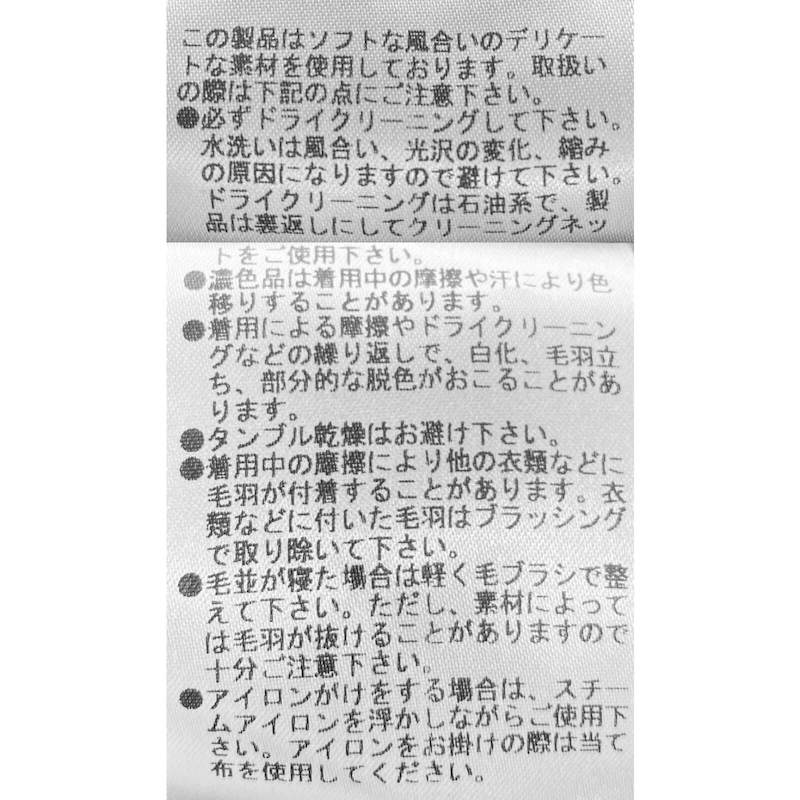 この製品はソフトな風合いのデリケー
トな素材を使用しております。取扱い
の際は下記の点にご注意下さい。
●必ずドライクリーニングして下さい。
水洗いは風合い、光沢の変化、縮み
の原因になりますので避けて下さい。
ドライクリーニングは石油系で、製
品は裏返しにしてクリーニングネッ
トをご使用下さい。
●濃色品は着用中の摩擦や汗により色
移りすることがあります。
●着用による摩擦やドライクリーニン
グなどの繰り返しで、白化、毛羽立
ち、部分的な脱色がおこることがあ
ります。
●タンブル乾燥はお避け下さい。
●着用中の摩擦により他の衣類などに
毛羽が付着することがあります。衣
類などに付いた毛羽はブラッシング
で取り除いて下さい。
●毛並が寝た場合は軽く毛ブラシで整
えて下さい。ただし、素材によって
は毛羽が抜けることがありますので
十分ご注意下さい。
●アイロンがけをする場合は、スチー
ムアイロンを浮かしながらご使用下
さい。アイロンをお掛けの際は当て
布を使用してください。